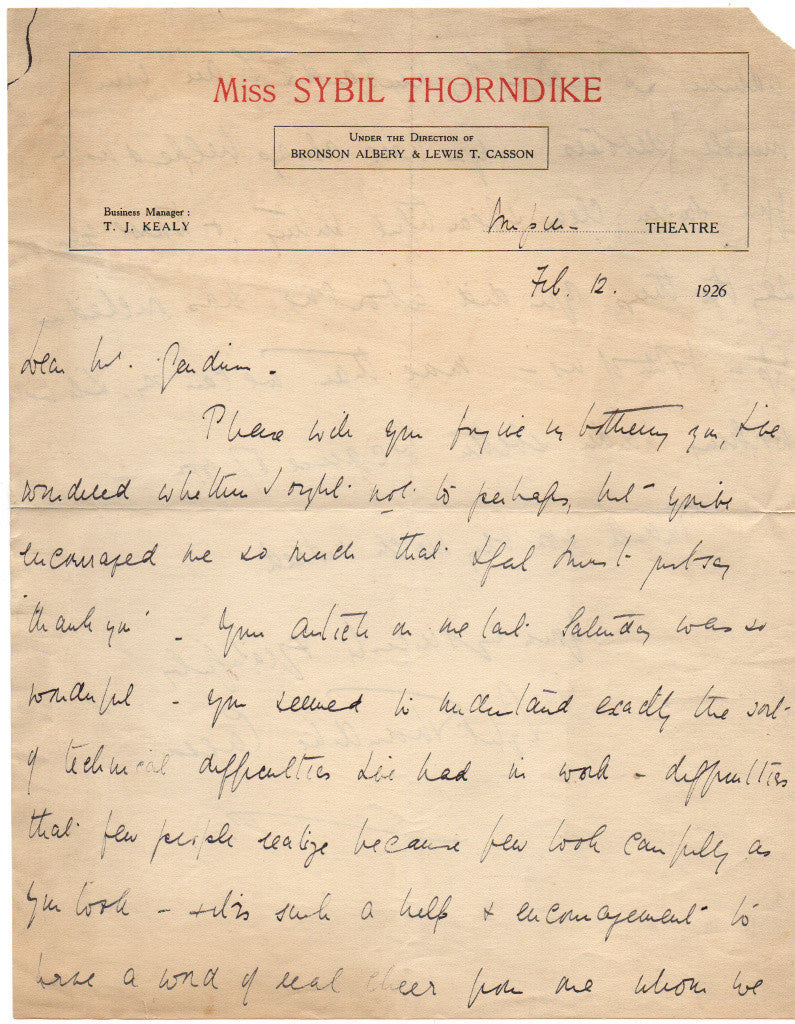 Miss SYBIL THORNDIKE
UNDER THE DIRECTION OF
BRONSON ALBERY & LEWIS T. CASSON
Business Manager:
T. J. KEALY
Empire THEATRE
Feb. 12. 1926
Dear Mr.
Please will you forgive my bothering you, I've
wondered whether I ought not to perhaps, but you've
encouraged me so much that I feel I must just say
'thank you' - Your article on me last Saturday was so
wonderful - you seemed to understand exactly the sort
of technical difficulties I've had in work - difficulties
that few people realize because few look carefully as
you look - & it is such a help & encouragement to
have a word of real cheer from one whom we